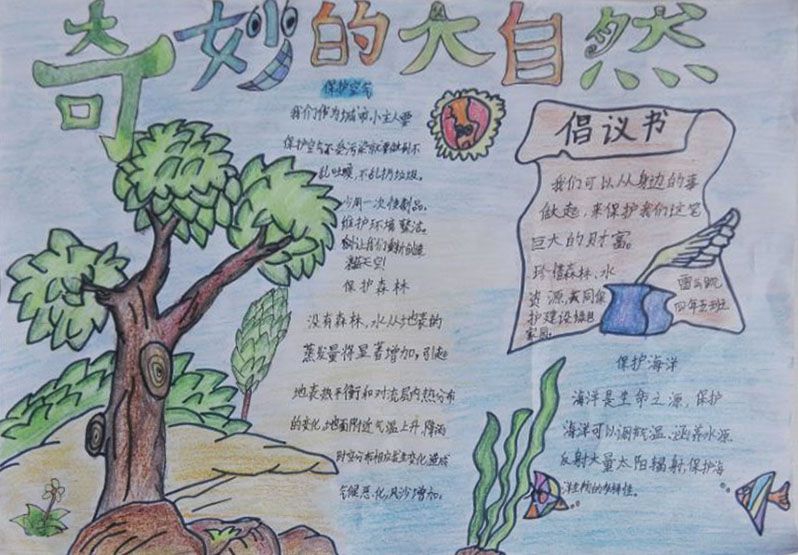 奇妙的大自然
保护空气
我们作为城市小主人要
保护空气不受污染就要做到不
乱吐痰,不乱扔垃圾。
少用一次性制品,
维护环境整洁。
让我们重新创造
蓝天空!
保护森林
没有森林,水从地表的
蒸发量将显著增加,引起
地表热平衡和对流层内热分布
的变化,地面附近气温上升,降雨
时空分布相应发生变化,造成
气候恶化,风沙增加。
倡议书
我们可以从身边的事
做起,来保护我们这笔
巨大的财富。
珍惜森林、水
资源,共同保
护建设绿色
家园。
四年五班
保护海洋
海洋是生命之源,保护
海洋可以调节气温、涵养水源
反射大量太阳辐射,保护海
洋生物的多样性。